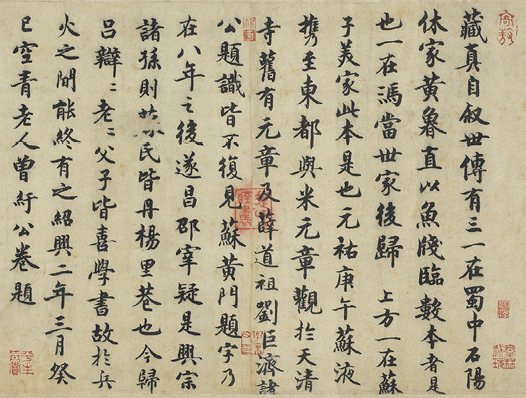 藏真自叙世傳有三一在蜀中石陽
休家黃魯直以魚牋臨數本者是
也一在馮當世家後歸 上方一在蘇
子美家此本是也元祐庚午蘇液
攜至東都與米元章觀於天清
寺舊有元章及薛道祖劉巨濟諸
公題識皆不復見蘇黃門題字乃
在八年之後遂昌邵宰疑是興宗
諸孫則蘇氏皆丹楊里巷也今歸
呂辯〻老〻父子皆喜學書故於兵
火之間能終有之紹興二年三月癸
巳空青老人曾紆公卷題